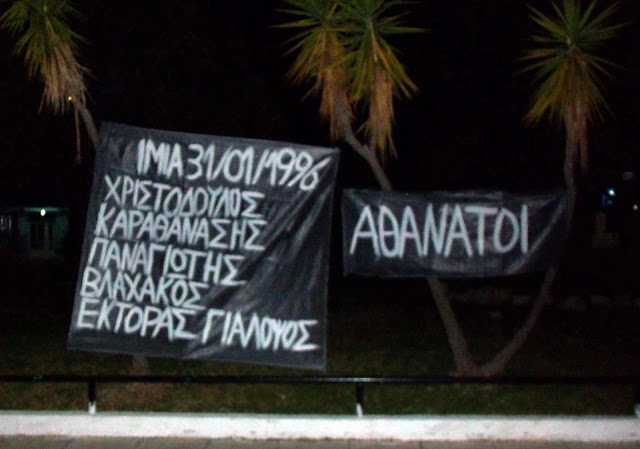 ΙΜΙΑ 31/01/1996
ΧΡΙΣΤΟΔΟΥΛΟΣ
ΚΑΡΑΘΑΝΑΣΗΣ
ΠΑΝΑΓΙΟΤΗΣ
ΒΛΑΧΑΚΟΣ
ΕΚΤΟΡΑΣ ΓΙΑΛΟΨΟΣ
ΑΘΑΝΑΤΟΙ